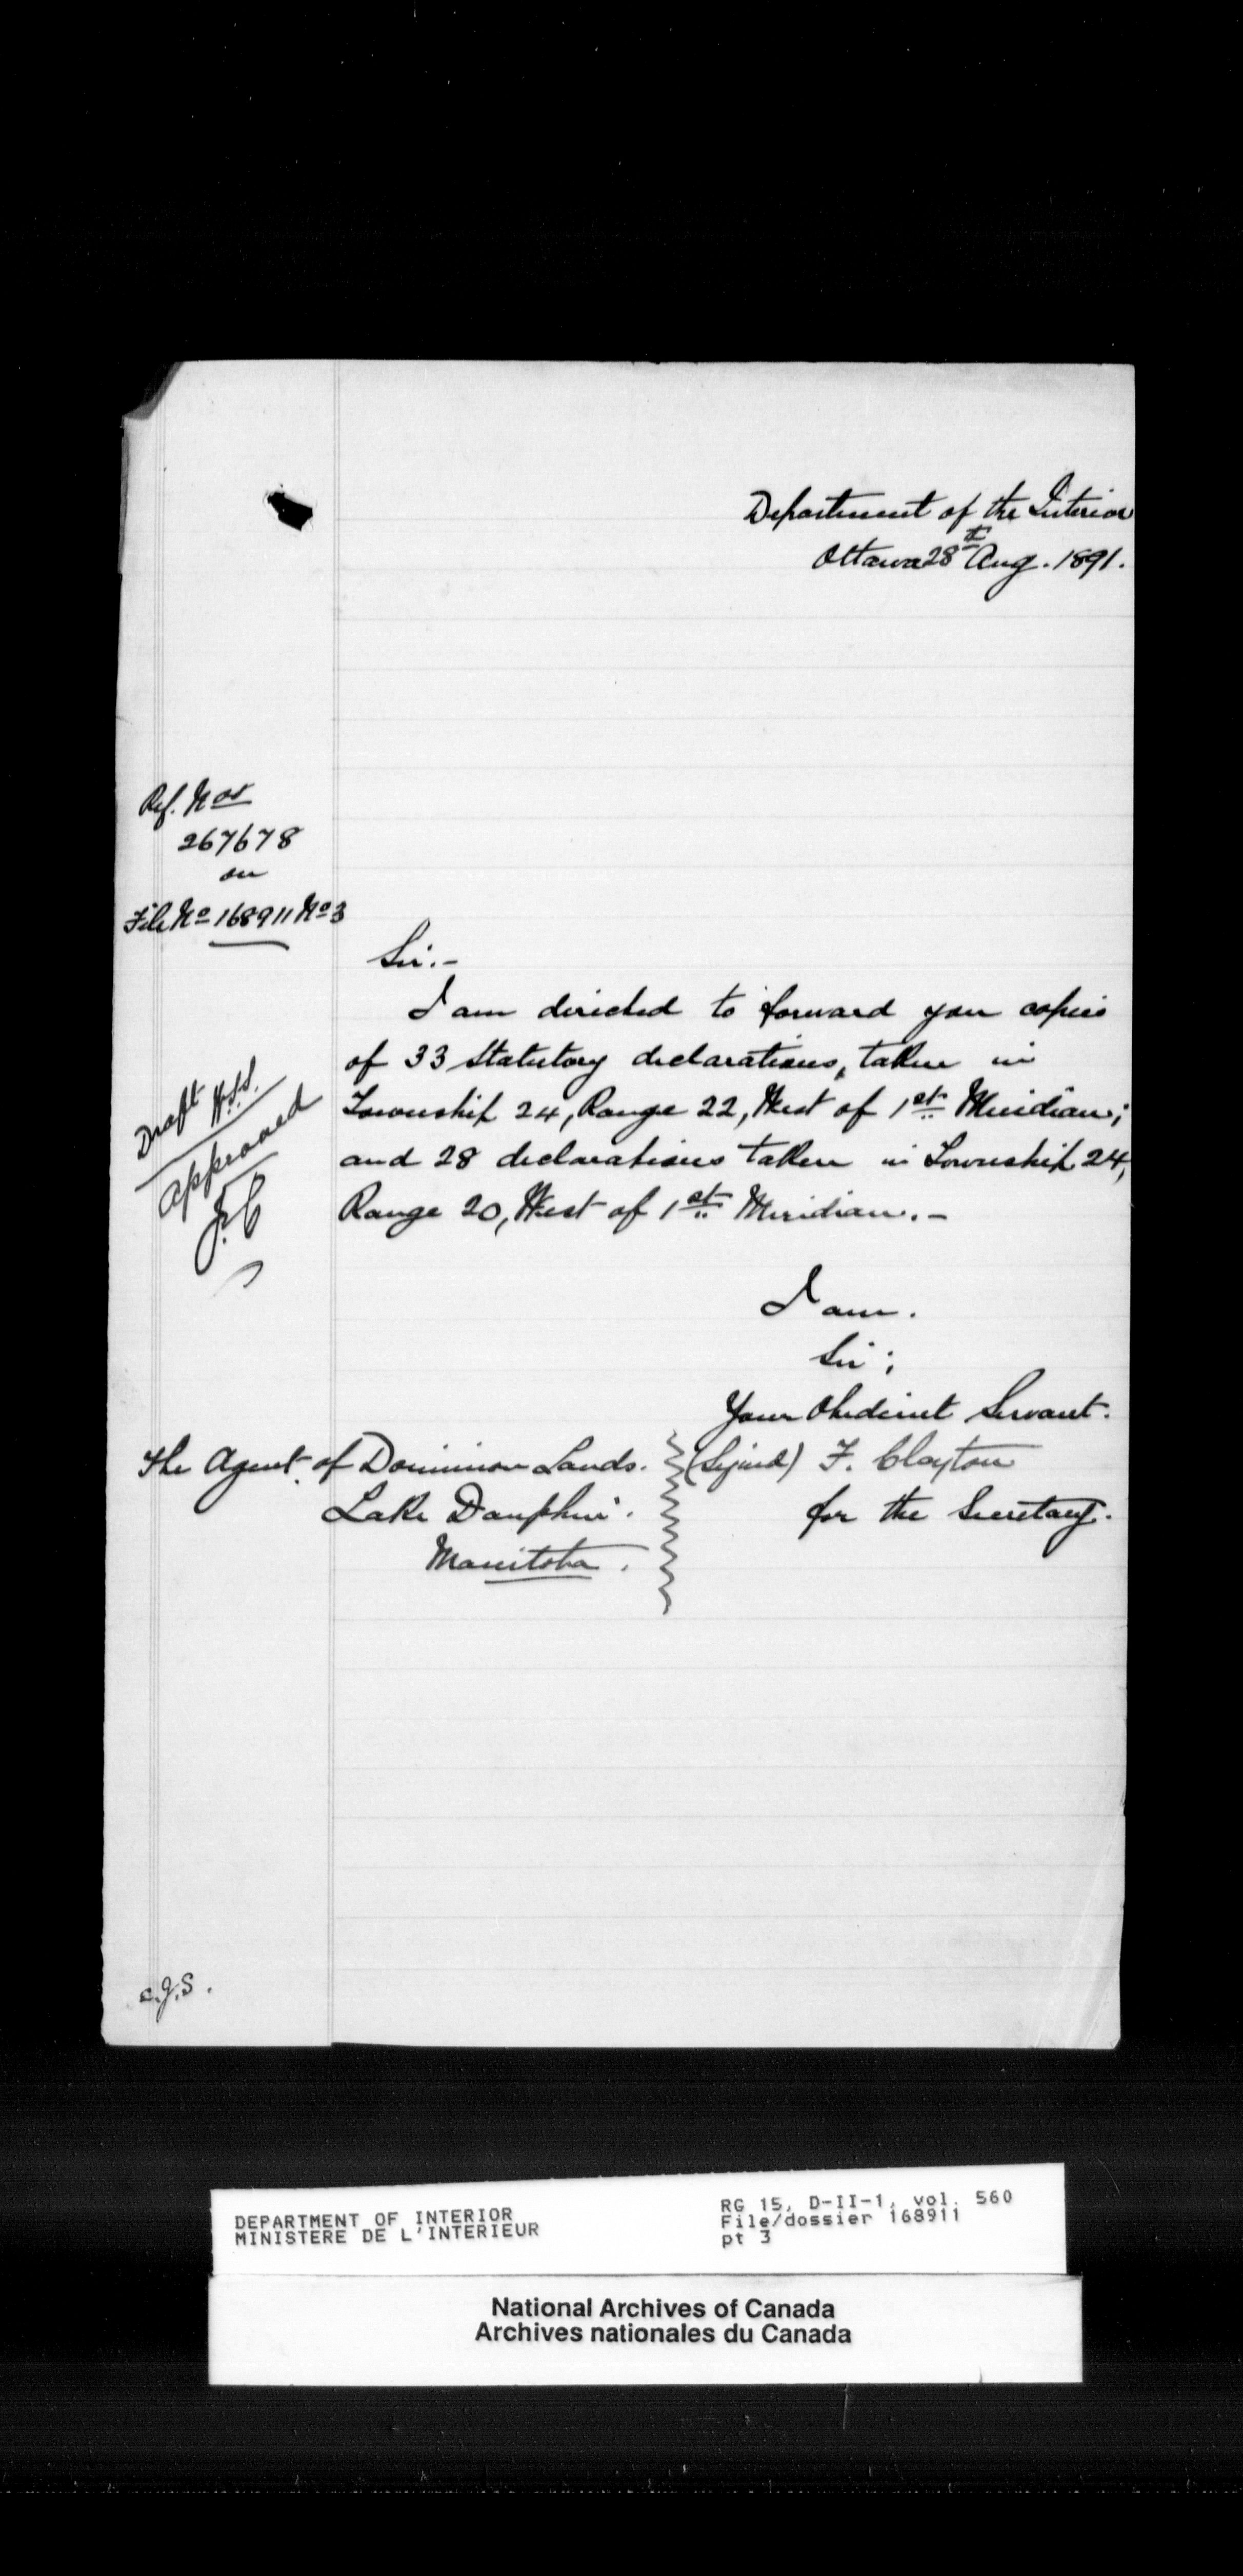 Department of the Interior
Ottawa 28th Aug. 1891.
Ref. Nos
267678
on
File No 168911 No 3
Sir:-
I am directed to forward you copies
of 33 Statutory declarations, taken in
Township 24, Range 22, West of 1st Meridian;
and 28 declarations taken in Township 24,
Range 20, West of 1st Meridian.-
Draft
Approved
I am.
Sir;
Your Obedient Servant.
(Signed) F. Clayton
for the Secretary.
The Agent of Dominion Lands.
Lake Dauphin.
Manitoba.
DEPARTMENT OF INTERIOR
MINISTERE DE L'INTERIEUR
RG 15, D-II-1, vol. 560
File/dossier 168911
pt 3
National Archives of Canada
Archives nationales du Canada